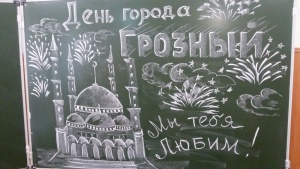 День города
ГРОЗНЫЙ
Мы тебя
ЛЮБИМ!